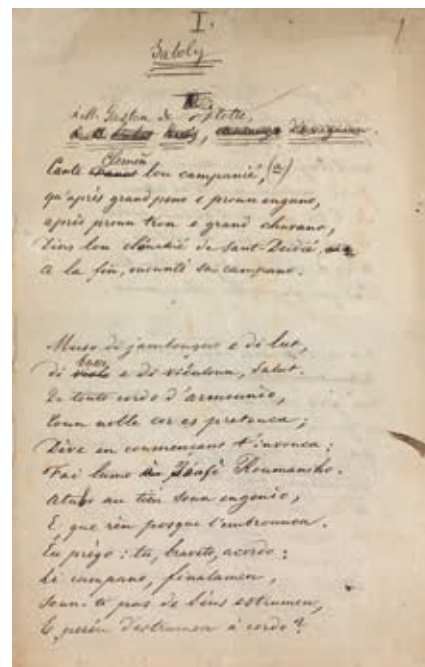 I.
1
Saboly
à M. Gaston de
Cante Clemèn lou campanié, (a)
qu'après grand peno e proun engano,
après proun tron e grand chavano,
Dins lou clouchié de Sant-Deidié,
A la fin, mounté sai campano.
Muso di jambougno e di lut,
di e di viéuloun, salut.
De touto cordo d'armounio,
Toun noble cor es pretouca;
Déve en coumençant t'invouca:
Fai lume Roumaniho.
au tiéu soun engenio,
E que rèn posque l'embrounca.
T'en prègo: tu, braveto, acordo:
Li campano, finalamen,
soun-ti pas de béus estrumen,
E perèn d'estrumen à cordo?